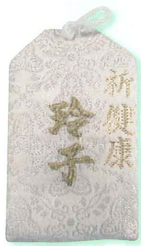 祈健康
玲子